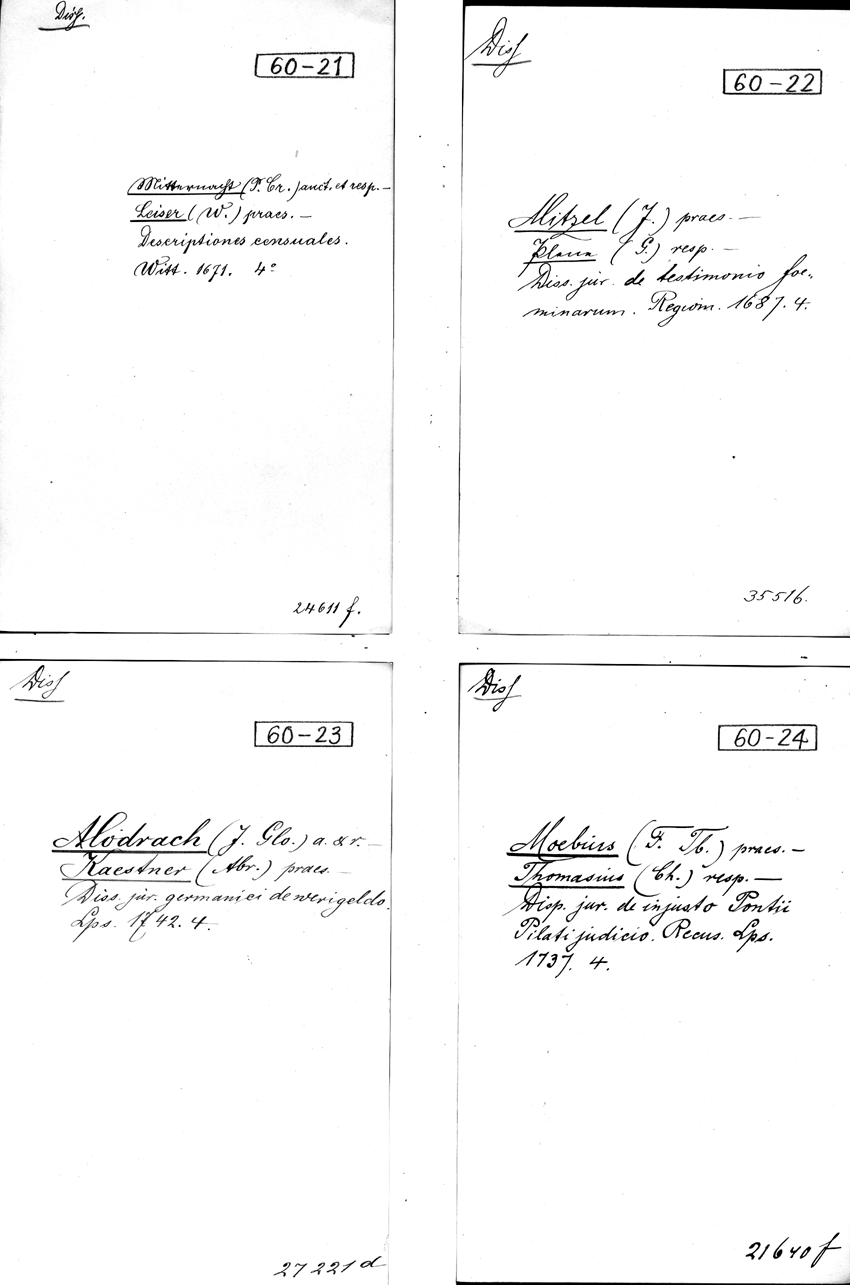 Diss.
60-21
Mitternacht (P. Cr.) auct. et resp. —
Leiser (W.) praes. —
Descriptiones censuales.
Witt. 1671. 4°
24611 f.
Diss
60-22
Mitzel (J.) praes. —
(G.) resp. —
Diss. jur. de testimonio foe-
minarum. Regiom. 1687. 4.
35516.
Diss
60-23
Modrach (J. Glo.) a. & r. —
Kaestner (Abr.) praes. —
Diss. jur. germanici de werigeldo.
Lps. 1742. 4.
27221 d
Diss
60-24
Moebius (F. Th.) praes. —
Thomasius (Ch.) resp. —
Disp. jur. de injusto Pontii
Pilati judicio. Recus. Lps.
1737. 4.
21640 f